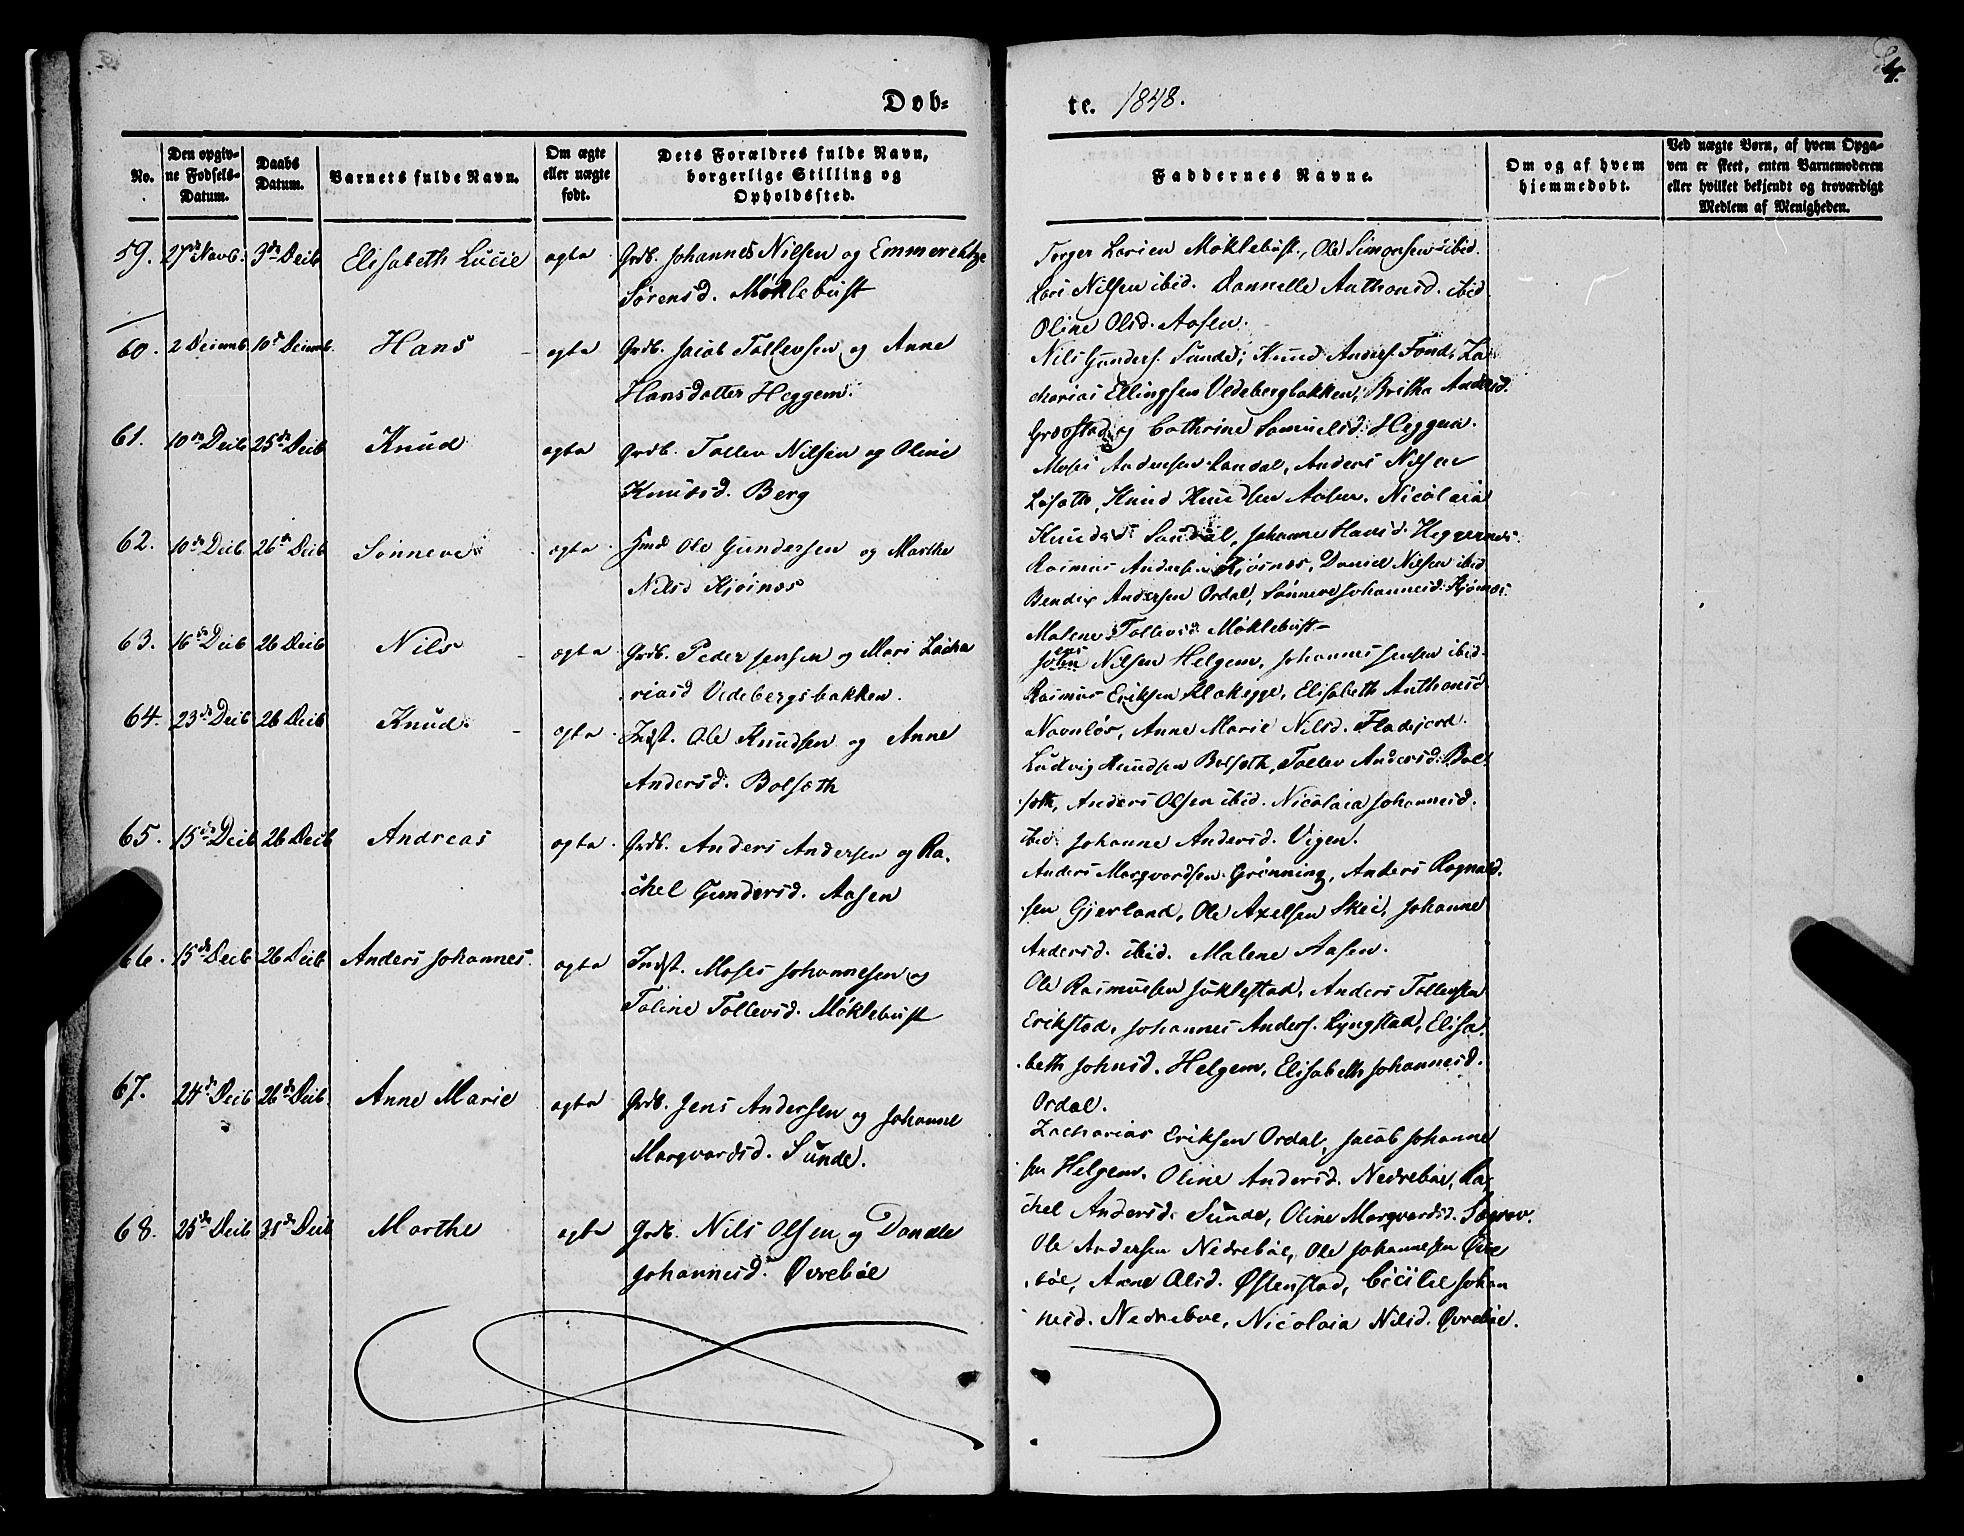 4.
Døb-
te. 1848.
No.
Den opgiv-
ne Fødsels-
Datum.
Daabs
Datum.
Barnets fulde Navn.
Om ægte
eller uægte
født.
Dets Forældres fulde Navn,
borgerlige Stilling og
Opholdssted.
Faddernes Navne.
Om og af hvem
hjemmedøbt.
Ved uægte Børn, af hvem Opga-
ven er skeet, enten Barnemoderen
eller hvilket bekjendt og troværdigt
Medlem af Menigheden.
59. 27de Novb. 3die Decb Elisabeth Lucie ægta Grdb. Johannes Nilsen og Emmerentze
Sørensd. Møklebust
Torger Larsen Møklebust, Ole Simonsen ibid.
Lars Nilsen ibid. Dannelle Anthonsd. ibid
Oline Olsd. Aasen.
60. 2 Decmb. 10d Decmb. Hans ægta Grdb. Jacob Tollevsen og Anne
Hansdatter Heggem.
Nils Gunders. Sunde, Knud Anders. Fond, Za
charias Ellingsen Vedebergbakken, Britha Andersd.
Grovstad og Cathrine Samuelsd. Heggem.
61. 10de Decb 25de Decb Knud ægta Grdb. Tollev Nilsen og Oline
Knudsd. Berg
Moses Andersen Sandal, Anders Nilsen
Løsæth, Knud Knudsen Aasen, Nicolaia
Knudsd. Sandal, Johanne Hansd. Heggernes.
62. 10de Decb 26de Decb Sønneve ægta Hmd Ole Gundersen og Marthe
Nilsd Kjøsnæs
Rasmus Andersen Kjøsnæs, Daniel Nilsen ibid
Bendix Andersen Ordal, Sønneve Johannesd. Kjøsnæs.
Malene Tollevsd. Møklebust
63. 16de Decb 26 Decb Nils ægta Grdb. Peder Jensen og Mari Zacha
riasd Vedebergsbakken.
Jens Nilsen Helgem, Johannes Jensen ibid.
Rasmus Eriksen Klakegge, Elisabeth Anthonsd
Navnløs, Anne Marie Nilsd. Fladejord.
64. 23de Decb 26 Decb Knud. ægta Indst. Ole Knudsen og Anne
Andersd. Bolsæth
Ludvig Knudsen Bolsæth, Tollev Andersd. Bol
sæth, Anders Olsen ibid. Nicolaia Johannesd.
ibid. Johanne Andersd. Vigen.
65. 15de Decb 26 Decb Andreas ægta Grdb. Anders Andersen og Ra-
chel Gundersd. Aasen
Anders Marqvardsen Grønning, Anders Ragnald.
sen Gjerland, Ole Axelsen Skei, Johanne
Andersd. ibid. Malene Aasen.
66. 15de Decb 26 Decb Anders Johannes. ægta Indst. Moses Johannesen og
Taline Tollevsd. Møklebust
Ole Rasmussen Jøklestad, Anders Tollevsen
Erikstad, Johannes Anders. Lyngstad, Elisa
beth Johnsd. Helgem, Elisabeth Johannesd.
Ordal.
67. 24de Decb 26de Decb. Anne Marie ægta Grdb. Jens Andersen og Johanne
Marqvardsd. Sunde.
Zacharias Eriksen Ordal, Jacob Johanne
sen Helgem, Oline Andersd. Nedrebøe, Ra-
chel Andersd. Sunde, Oline Marqvardsd. Sægrov.
68. 25de Decb 31de Decb Marthe ægta Grdb. Nils Olsen og Danele
Johannesd. Øvrebøe
Ole Andersen Nedrebøe, Ole Johannesen Øvre
bøe, Anne Olsd. Østenstad, Cecilie Johan
nesd. Nedrebøe, Nicolaia Nilsd. Øvrebøe.